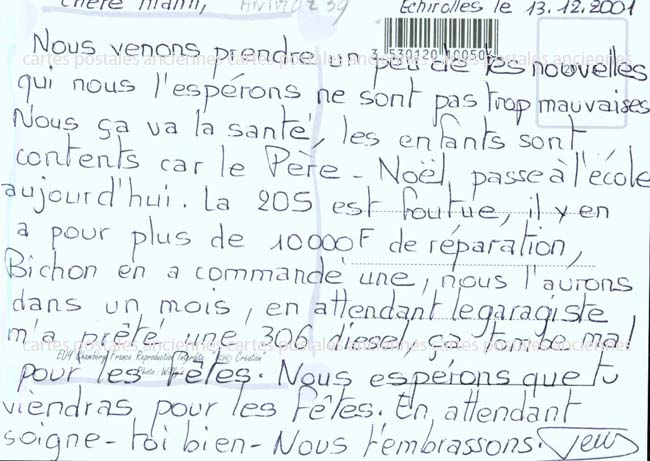 chère Mamn,
Echirolles le 13.12.2001
Nous venons prendre un peu de tes nouvelles
qui nous l'espérons ne sont pas trop mauvaises
Nous ça va la santé, les enfants sont
contents car le Père-Noël passe à l'école
aujourd'hui. La 205 est foutue, il y en
a pour plus de 10000F de réparation,
Bichon en a commandé une, nous l'aurons
dans un mois, en attendant le garagiste
m'a prêté une 306 diesel, ça tombe mal
pour les fêtes. Nous espérons que tu
viendras pour les fêtes. En attendant
soigne-toi bien-Nous t'embrassons.
3 530120 100504
cartes postales anciennes cartes postales anciennes cartes postales anciennes
cartes postales anciennes cartes postales anciennes cartes postales anciennes
Chambéry France Reproduction Interdite
Création
Photo :